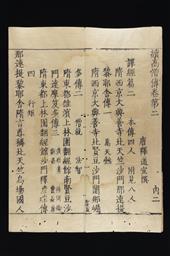 續高僧傳卷第二 內二
唐釋道宣撰
譯經篇二 本傳四人 附見八人
隋西京大興善寺北天竺沙門那連
黎耶舍傳一 萬天懿
隋西京大興善寺北天竺沙門闍那崛
多傳二 僧就 法智
隋東都雒濱上林園翻經館南賢豆沙
門達摩笈多傳三
隋東都上林園翻經館沙門釋彥琮傳
四 行矩
那連提黎耶舍隋言尊稱北天竺烏場國人